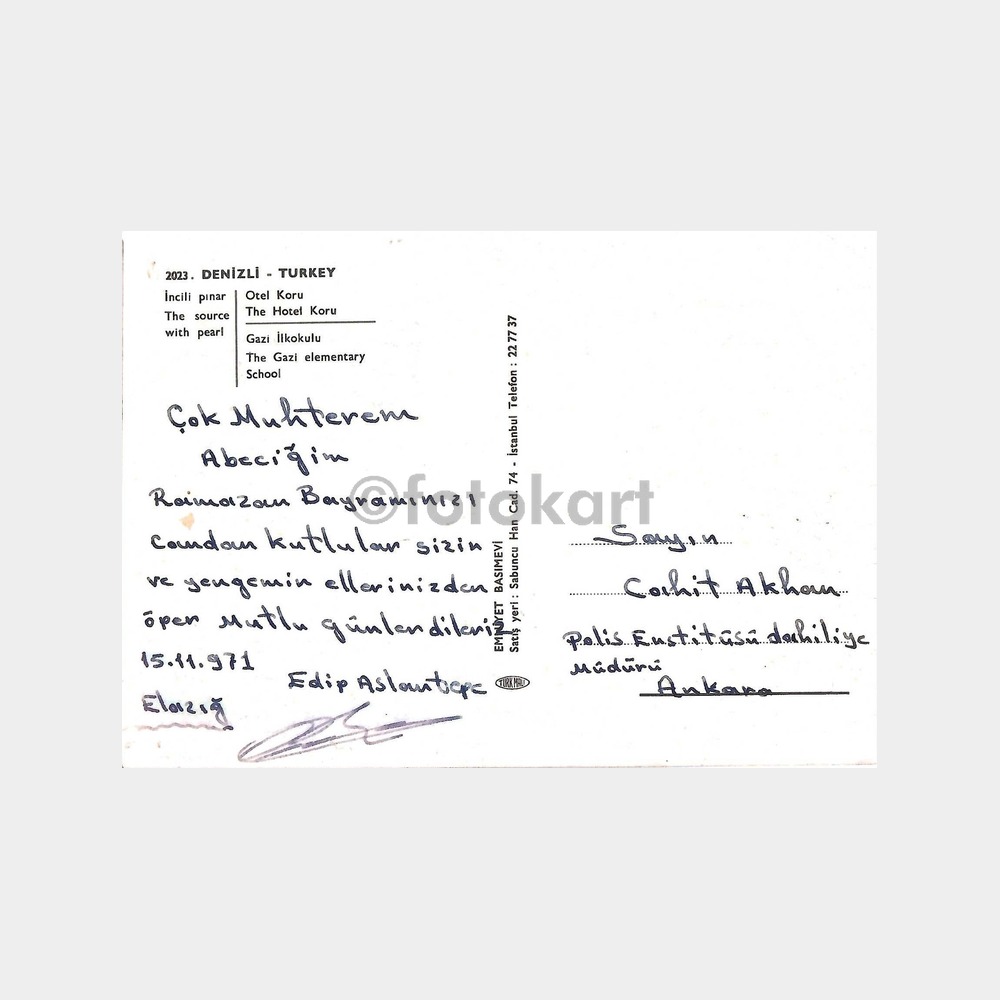 2023. DENİZLİ - TURKEY
İncili pınar
The source
with pearl
Otel Koru
The Hotel Koru
Gazi İlkokulu
The Gazi elementary
School
Çok Muhterem
Abeciğim
Ramazan Bayramınızı
candan kutlular sizin
ve yengemin ellerinizden
öper Mutlu günler dileriz
15.11.971
Edip Aslantepe
Elazığ
EMNİYET BASIMEVİ
Satış yeri : Sabuncu Han Cad. 74 - İstanbul Telefon : 22 77 37
TÜRK MALI
Sayın
Cahit Akhan
Polis Enstitüsü dahiliye
Müdürü
Ankara
©fotokart